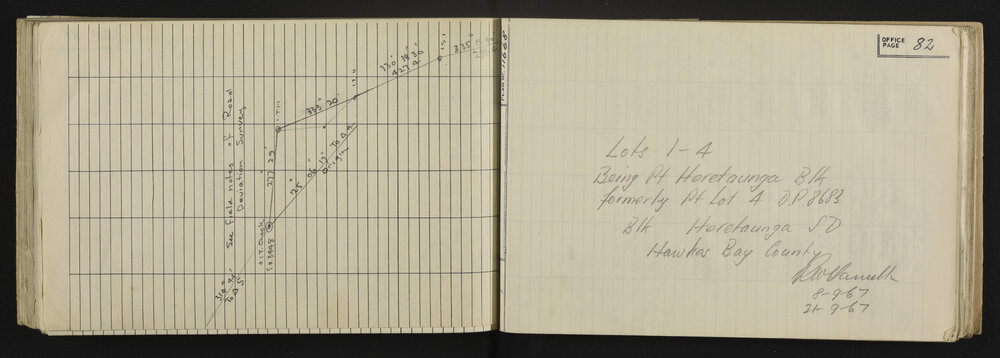 See field notes of Road
Deviation Survey
335°
330° 38' 30"
427.4
333° 20'
277° 29'
25° 06' 17" To Δ A
origin
O.I.T. Check
S.O 3998
OFFICE
PAGE 82
Lots 1-4
Being Pt Heretaunga Blk
formerly Pt Lot 4 D.P 8683
Blk Heretaunga SD
Hawkes Bay County
8-9-67
21-9-67